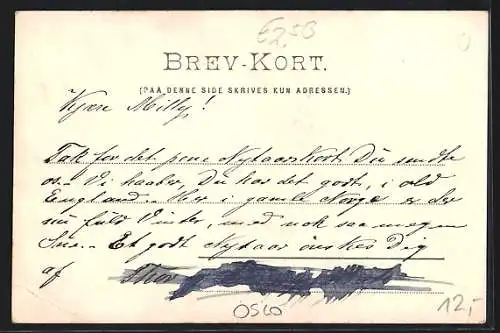 £2.50
BREV-KORT.
(PAA DENNE SIDE SKRIVES KUN ADRESSEN.)
Kjære Milly!
Tak for det pene Nytaarskort Du sendte
os. Vi haaber, Du har det godt, i old
England. Her i gamle Norge er der
nu fuld Vinter, med nok saa megen
Sne. Et godt Nytaar ønskes Dig
af
OSLO
12,-